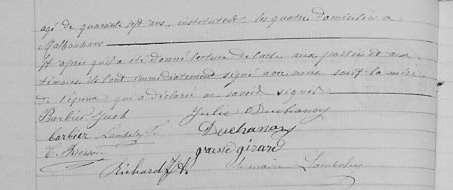 agé de quarante sept ans, instituteur, les quatre domiciliés à
Malbouhans
Et après qu'il a été donné lecture de l'acte aux parties et aux
témoins ils l'ont immédiatement signé avec nous sauf la mère
de l'épouse qui a déclaré ne savoir signer
Barbier Jules Duchanoy
Barbier Duchanoy
grosse girard
Richard Le maire